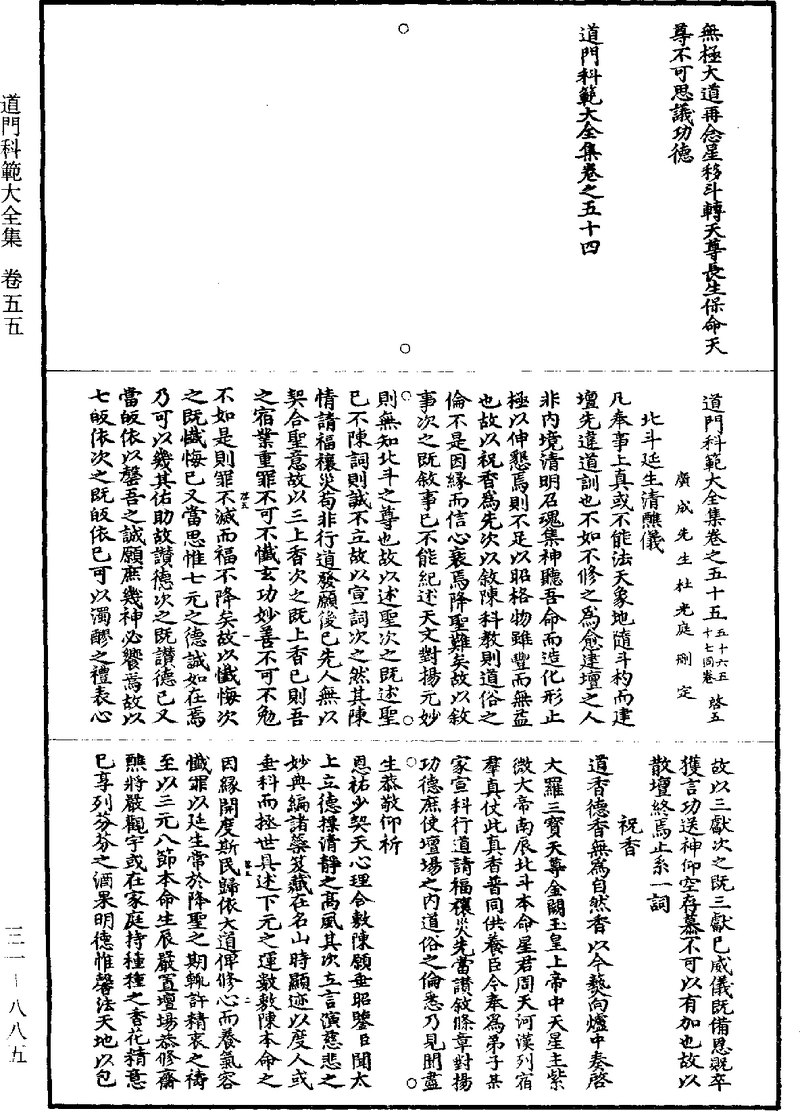 道門科範大全集 卷五五
三一－八八五
無極大道再念星移斗轉天尊長生保命天
尊不可思議功德
道門科範大全集卷之五十四
道門科範大全集卷之五十五 五十六五十七同卷 啓五
廣成先生杜光庭刪定
北斗延生清醮儀
凡奉事上真或不能法天象地隨斗杓而建
壇先違道訓也不如不修之爲愈建壇之人
非內境清明召魂集神聽吾命而造化形止
極以伸懇焉則不足以昭格物雖豐而無益
也故以祝香爲先次以敘陳科教則道俗之
倫不是因緣而信心衰焉降聖難矣故以敘
事次之既敘事已不能紀述天文對揚元妙
則無知北斗之尊也故以述聖次之既述聖
已不陳詞則誠不立故以宣詞次之然其陳
情請福禳災苟非行道發願後已先人無以
契合聖意故以三上香次之既上香已則吾
之宿業重罪不可不懺玄功妙善不可不勉
啓五
一
不如是則罪不滅而福不降矣故以懺悔次
之既懺悔已又當思惟七元之德誠如在焉
乃可以幾其佑助故讚德次之既讚德已又
當皈依以罄吾之誠願庶幾神必饗焉故以
七皈依次之既皈依已可以濁醪之禮表心
故以三獻次之既三獻已威儀既備恩貺卒
獲言功送神仰空存慕不可以有加也故以
散壇終焉止系一詞
祝香
道香德香無爲自然香以今爇向爐中奏啓
大羅三寶天尊金闕玉皇上帝中天星主紫
微大帝南辰北斗本命星君周天河漢列宿
羣真仗此真香普同供養臣今奉爲弟子某
家宣科行道請福禳災先當讚敘條章對揚
功德庶使壇場之內道俗之倫悉乃見聞盡
生恭敬仰祈
恩祐少契天心理合敷陳願垂昭鑒臣聞太
上立德揲清靜之高風其次立言演慈悲之
妙典編諸蘂笈藏在名山時顯迹以度人或
垂科而拯世具述下元之運數敷陳本命之
啓五
二
因緣開度斯民歸依大道俾修心而養氣容
懺罪以延生常於降聖之期輒許精衷之禱
至以三元八節本命生辰嚴置壇場恭修齋
醮將嚴觀宇或在家庭持種種之香花精意
已享列芬芬之酒果明德惟馨法天地以包